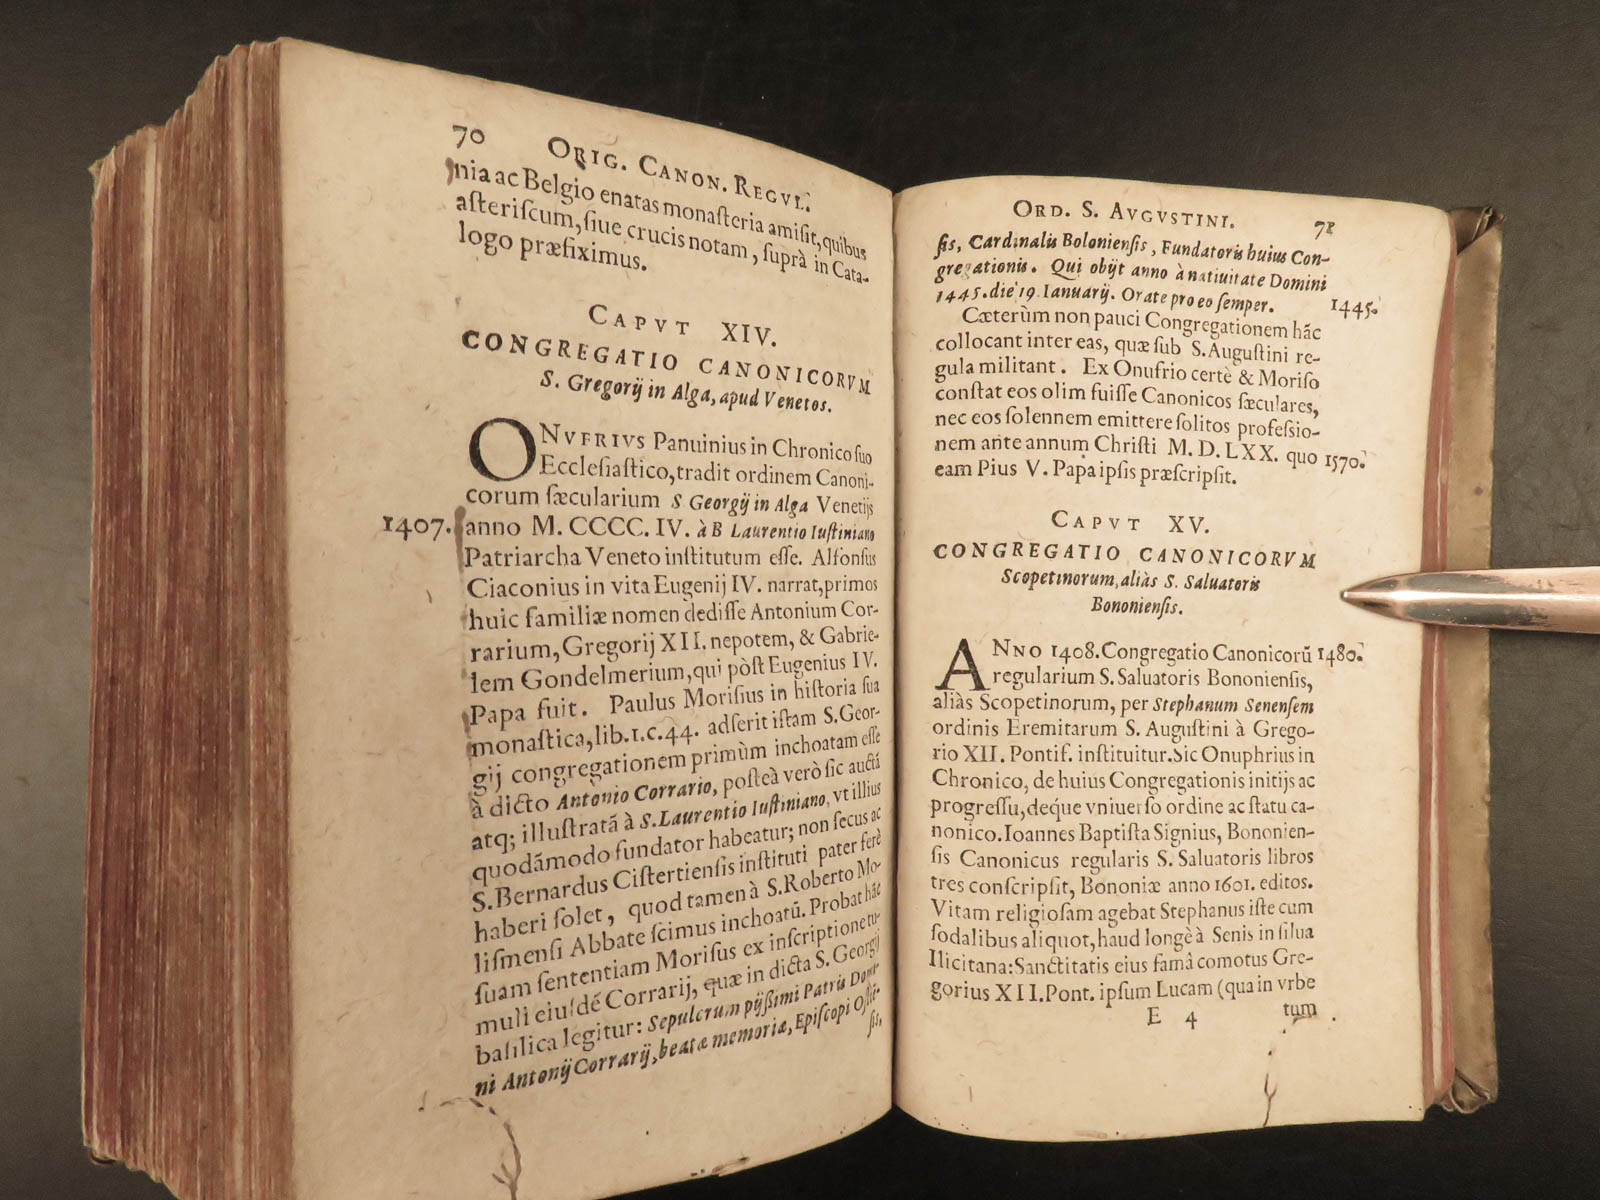 70 ORIG. CANON. REGVL.
nia ac Belgio enatas monaſteria amiſit, quibus
aſteriſcum, ſiue crucis notam, ſuprà in Cata-
logo præfiximus.
CAPVT XIV.
CONGREGATIO CANONICORVM
S. Gregorij in Alga, apud Venetos.
ONVFRIVS Panuinius in Chronico ſuo
Eccleſiaſtico, tradit ordinem Canoni-
corum ſæcularium S Georgij in Alga Venetijs
1407. anno M. CCCC. IV. à B Laurentio Iuſtiniano
Patriarcha Veneto inſtitutum eſſe. Alfonſus
Ciaconius in vita Eugenij IV. narrat, primos
huic familiæ nomen dediſſe Antonium Cor-
rarium, Gregorij XII. nepotem, & Gabrie-
lem Gondelmerium, qui pòſt Eugenius IV.
Papa fuit. Paulus Moriſius in hiſtoria ſua
monaſtica, lib. 1. c. 44. adſerit iſtam S. Geor-
gij congregationem primùm inchoatam eſſe
à dicto Antonio Corrario, poſteà verò ſic auctã
atq; illuſtratã à S. Laurentio Iuſtiniano, vt illius
quodãmodo fundator habeatur; non ſecus ac
S. Bernardus Ciſtertienſis inſtituti pater ferè
haberi ſolet, quod tamen à S. Roberto Mo-
liſmenſi Abbate ſcimus inchoatũ. Probat hãc
ſuam ſententiam Moriſus ex inſcriptione tu-
muli eiuſdẽ Corrarij, quæ in dicta S. Georgij
baſilica legitur: Sepulcrum pijßimi Patris Domi-
ni Antonij Corrarij, beatæ memoriæ, Epiſcopi Oſtiẽ-
ſis,
ORD. S. AVGVSTINI. 71
ſis, Cardinalis Bolonienſis, Fundatoris huius Con-
gregationis. Qui obijt anno à natiuitate Domini
1445. die 19. Ianuarij. Orate pro eo ſemper. 1445.
Cæterùm non pauci Congregationem hãc
collocant inter eas, quæ ſub S. Auguſtini re-
gula militant. Ex Onufrio certè & Moriſo
conſtat eos olim fuiſſe Canonicos ſæculares,
nec eos ſolennem emittere ſolitos profeſsio-
nem ante annum Chriſti M. D. LXX. quo 1570.
eam Pius V. Papa ipſis præſcripſit.
CAPVT XV.
CONGREGATIO CANONICORVM
Scopetinorum, aliàs S. Saluatoris
Bononienſis.
ANNO 1408. Congregatio Canonicorũ 1480.
regularium S. Saluatoris Bononienſis,
aliàs Scopetinorum, per Stephanum Senenſem
ordinis Eremitarum S. Auguſtini à Grego-
rio XII. Pontif. inſtituitur. Sic Onuphrius in
Chronico, de huius Congregationis initijs ac
progreſſu, deque vniuerſo ordine ac ſtatu ca-
nonico. Ioannes Baptiſta Signius, Bononien-
ſis Canonicus regularis S. Saluatoris libros
tres conſcripſit, Bononiæ anno 1601. editos.
Vitam religioſam agebat Stephanus iſte cum
ſodalibus aliquot, haud longè à Senis in ſilua
Ilicitana: Sanctitatis eius famâ comotus Gre-
gorius XII. Pont. ipſum Lucam (qua in vrbe
E 4 tum